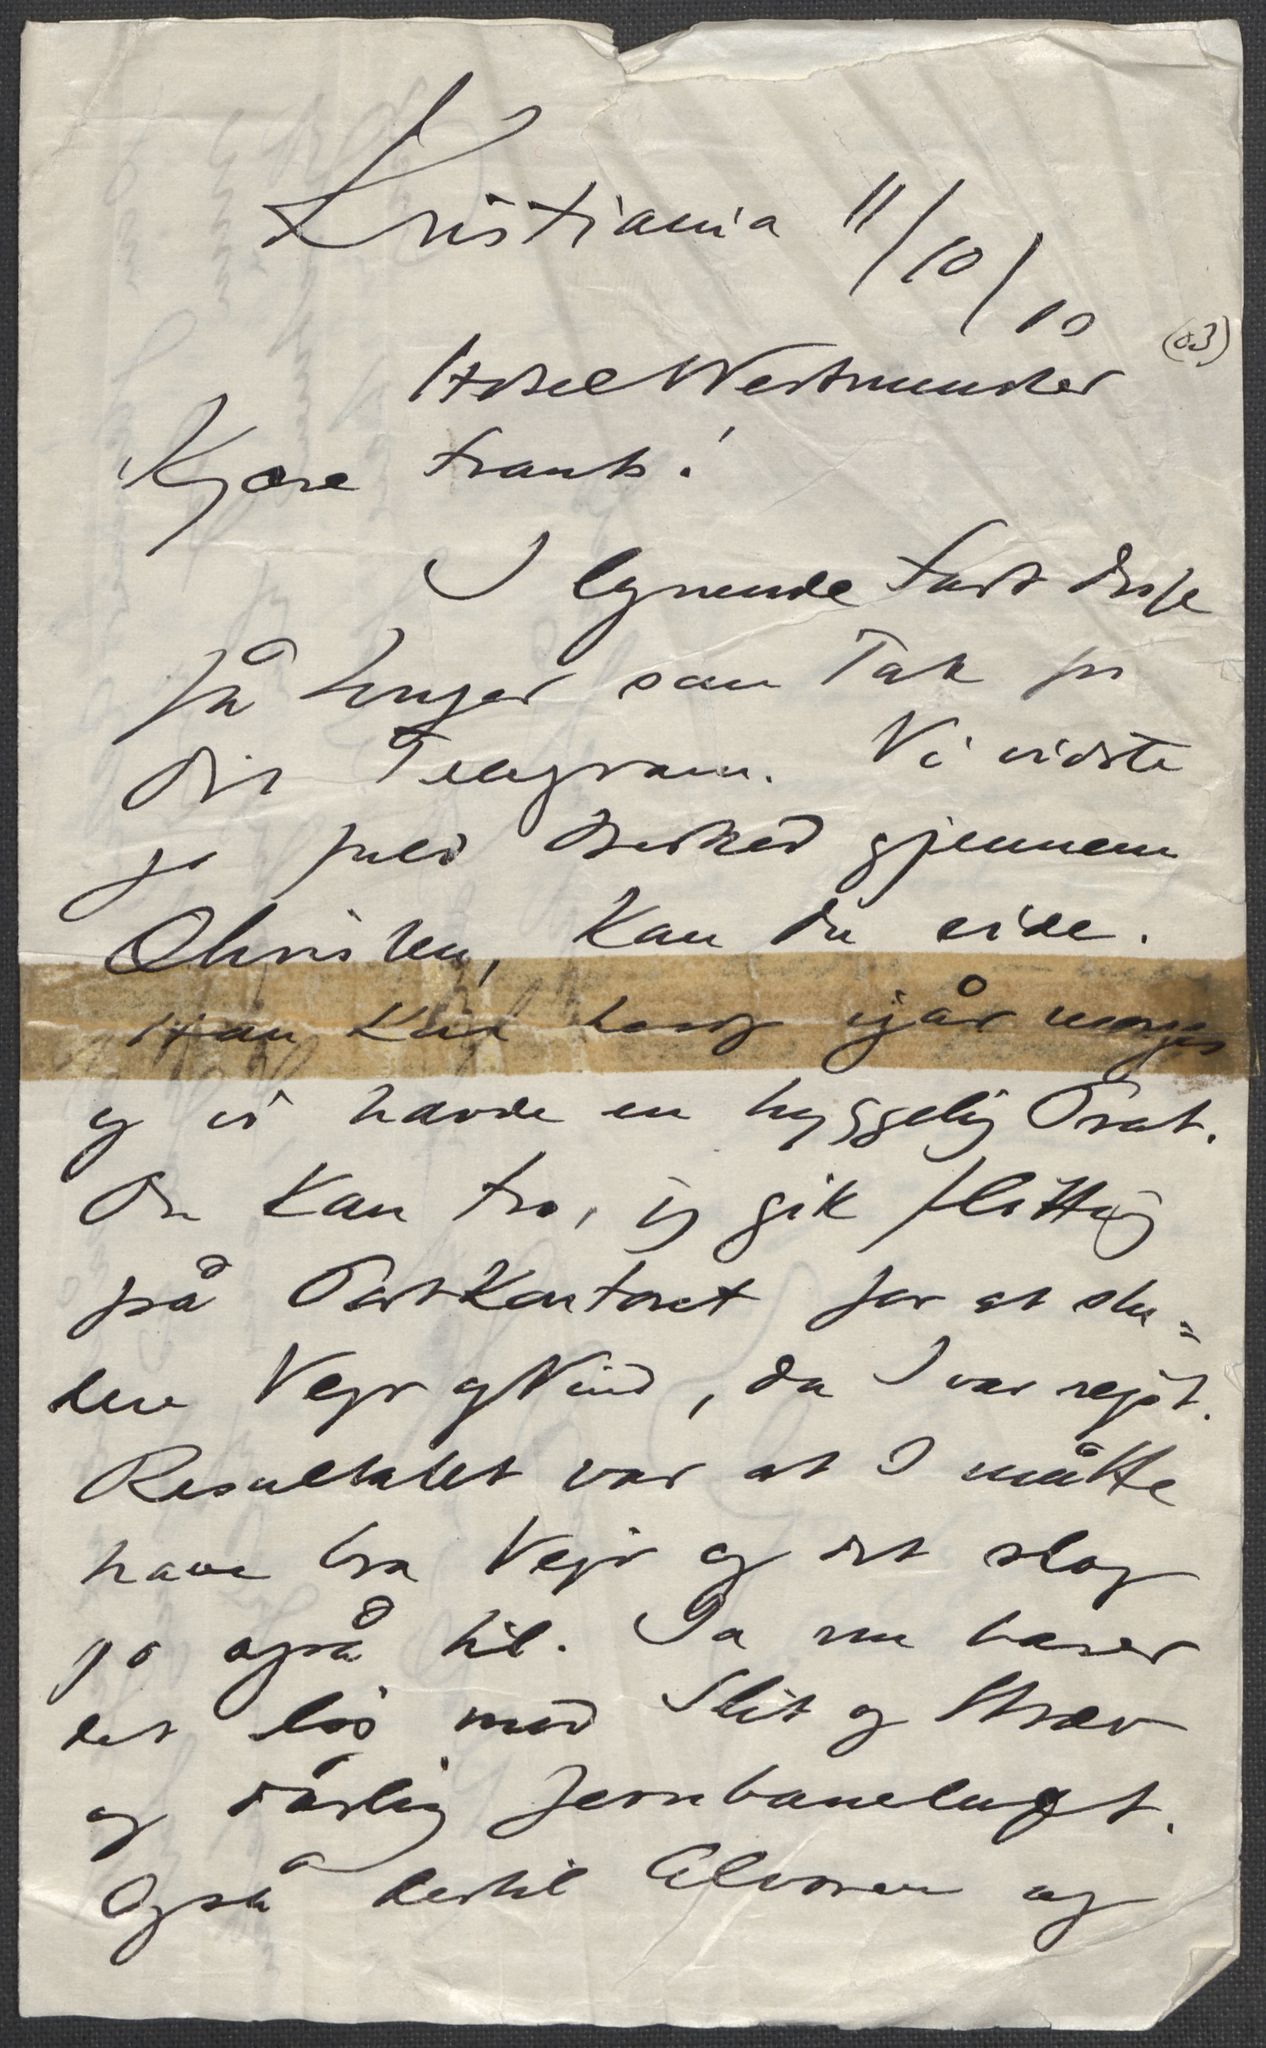 Kristiania 11/10/10
(83)
Hotel Westminster
Kjære Frants!
I lynende Fart disse
få Linjer som Tak for
dit Telegram. Vi vidste
jo fuld Besked gjennem
Christen, kan du vide.
Han kik herop igår morges
og vi havde en hyggelig Prat.
Du kan tro, jeg gik flittig
på Postkontoret for at stu=
dere Vejr og Vind, da I var rejst.
Resultatet var at I måtte
have bra Vejr og det slog
jo også til. Ja nu bærer
det løs med Slit og Stræv
og dårlig Jernbaneluft.
Også dertil Alvoren og